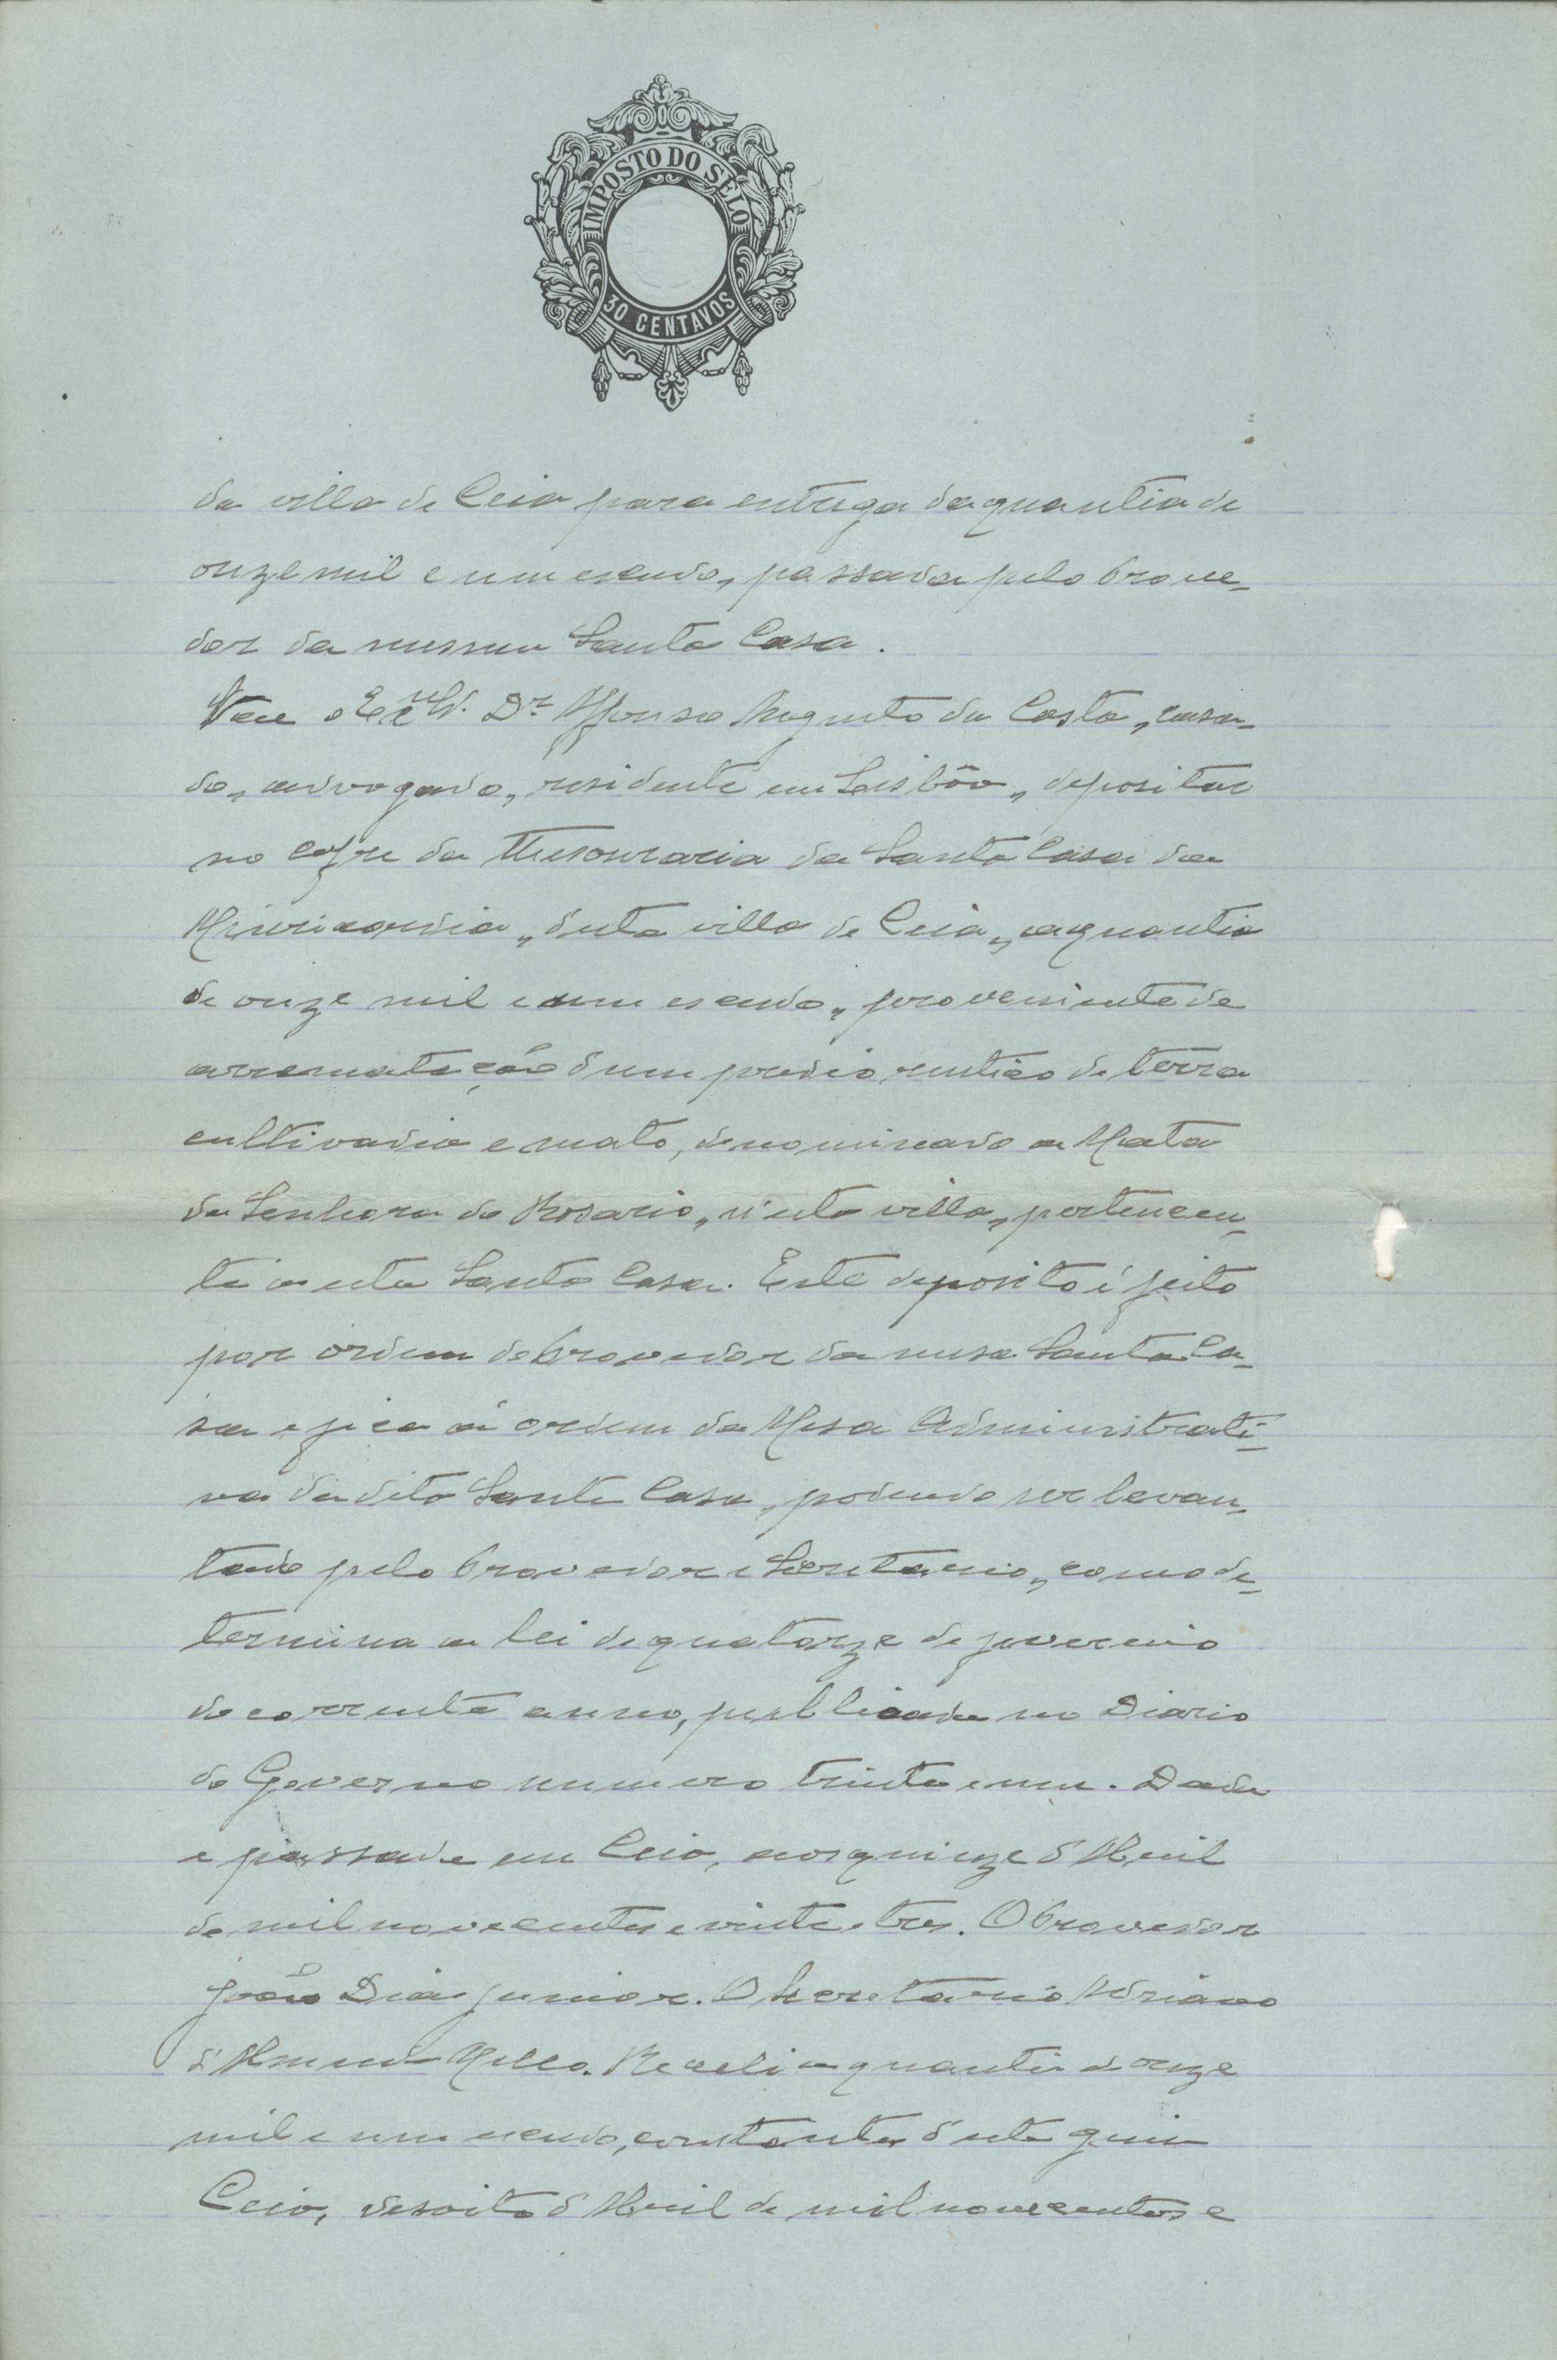 IMPOSTO DO SELO
30 CENTAVOS
da villa de Ceia para entrega da quantia de
onze mil e um escudo, passada pelo Prove-
dor da mesma Santa Casa.
Vae o Exmo Sr. Dr Affonso Augusto da Costa, casa-
do, advogado, residente em Lisbôa, depositar
no cofre da Thesouraria da Santa Casa da
Misericordia, d'esta villa de Ceia, a quantia
de onze mil e um escudo, proveniente de
arrematação d'um predio rustico de terra
cultivadia e mato, denominado a Mata
da Senhora do Rosario, n'esta villa, pertencen-
te a esta Santa Casa. Este deposito é feito
por ordem do Provedor da mesa Santa Ca-
sa e fica á ordem da Mesa Administrati-
va da dita Santa Casa, podendo ser levan-
tado pelo Provedor e Secretario, como de-
termina a lei de quatorze de fevereiro
do corrente anno, publicada no Diario
do Governo numero trinta e um. Dada
e passada em Ceia, aos quinze d'Abril
de mil novecentos e vinte e tres. O Provedor
João Dias Junior. O Secretario Adriano
d'Almeida Mello. Recebi a quantia de onze
mil e um escudo, constante d'esta guia
Ceia, desoito d'Abril de mil novecentos e